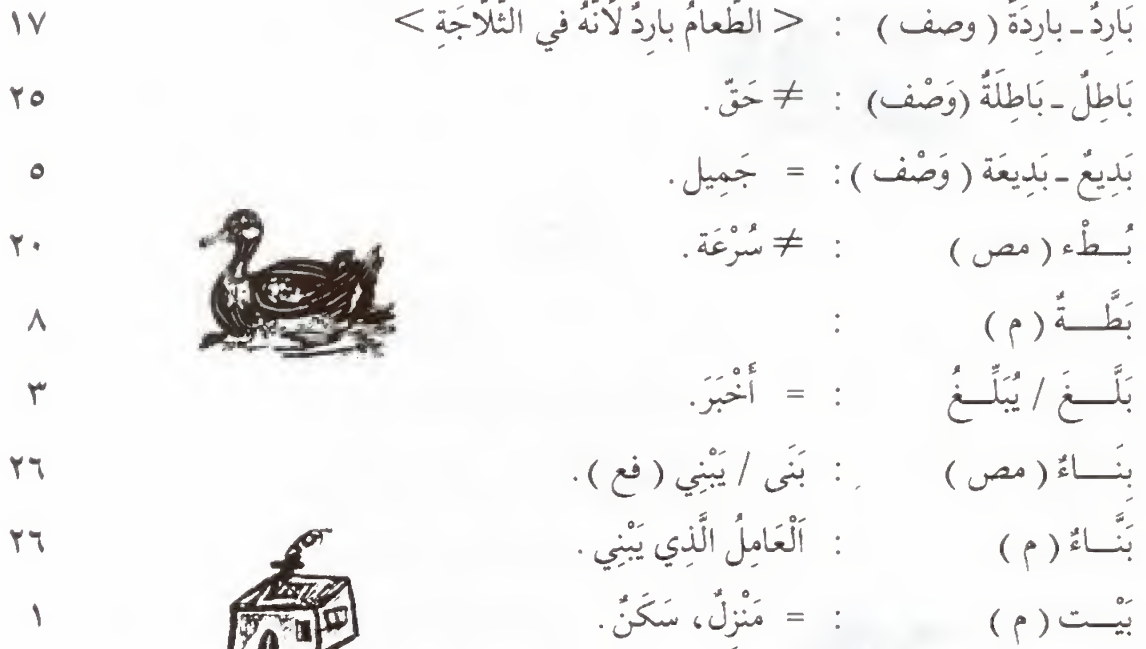 بَارِدٌ ـ بارِدَةٌ ( وصف ) : < الطَّعامُ بارِدٌ لأَنَّهُ في الثَّلاَّجَةِ > ١٧
بَاطِلٌ ـ بَاطِلَةٌ (وَصْف) : ≠ حَقّ . ٢٥
بَدِيعٌ ـ بَدِيعَة ( وَصْف ) : = جَمِيل . ٥
بُـطْء ( مص ) : ≠ سُرْعَة . ٢٠
بَطَّـــةٌ ( م ) : ٨
بَلَّـــغَ / يُبَلِّـــغُ : = أَخْبَرَ. ٣
بِنَـــاءٌ ( مص ) : بَنَى / يَبْنِي ( فع ) . ٢٦
بَنَّـــاءٌ ( م ) : اَلْعَامِلُ الَّذِي يَبْنِي . ٢٦
بَيْـــت ( م ) : = مَنْزِلٌ، سَكَنٌ . ١